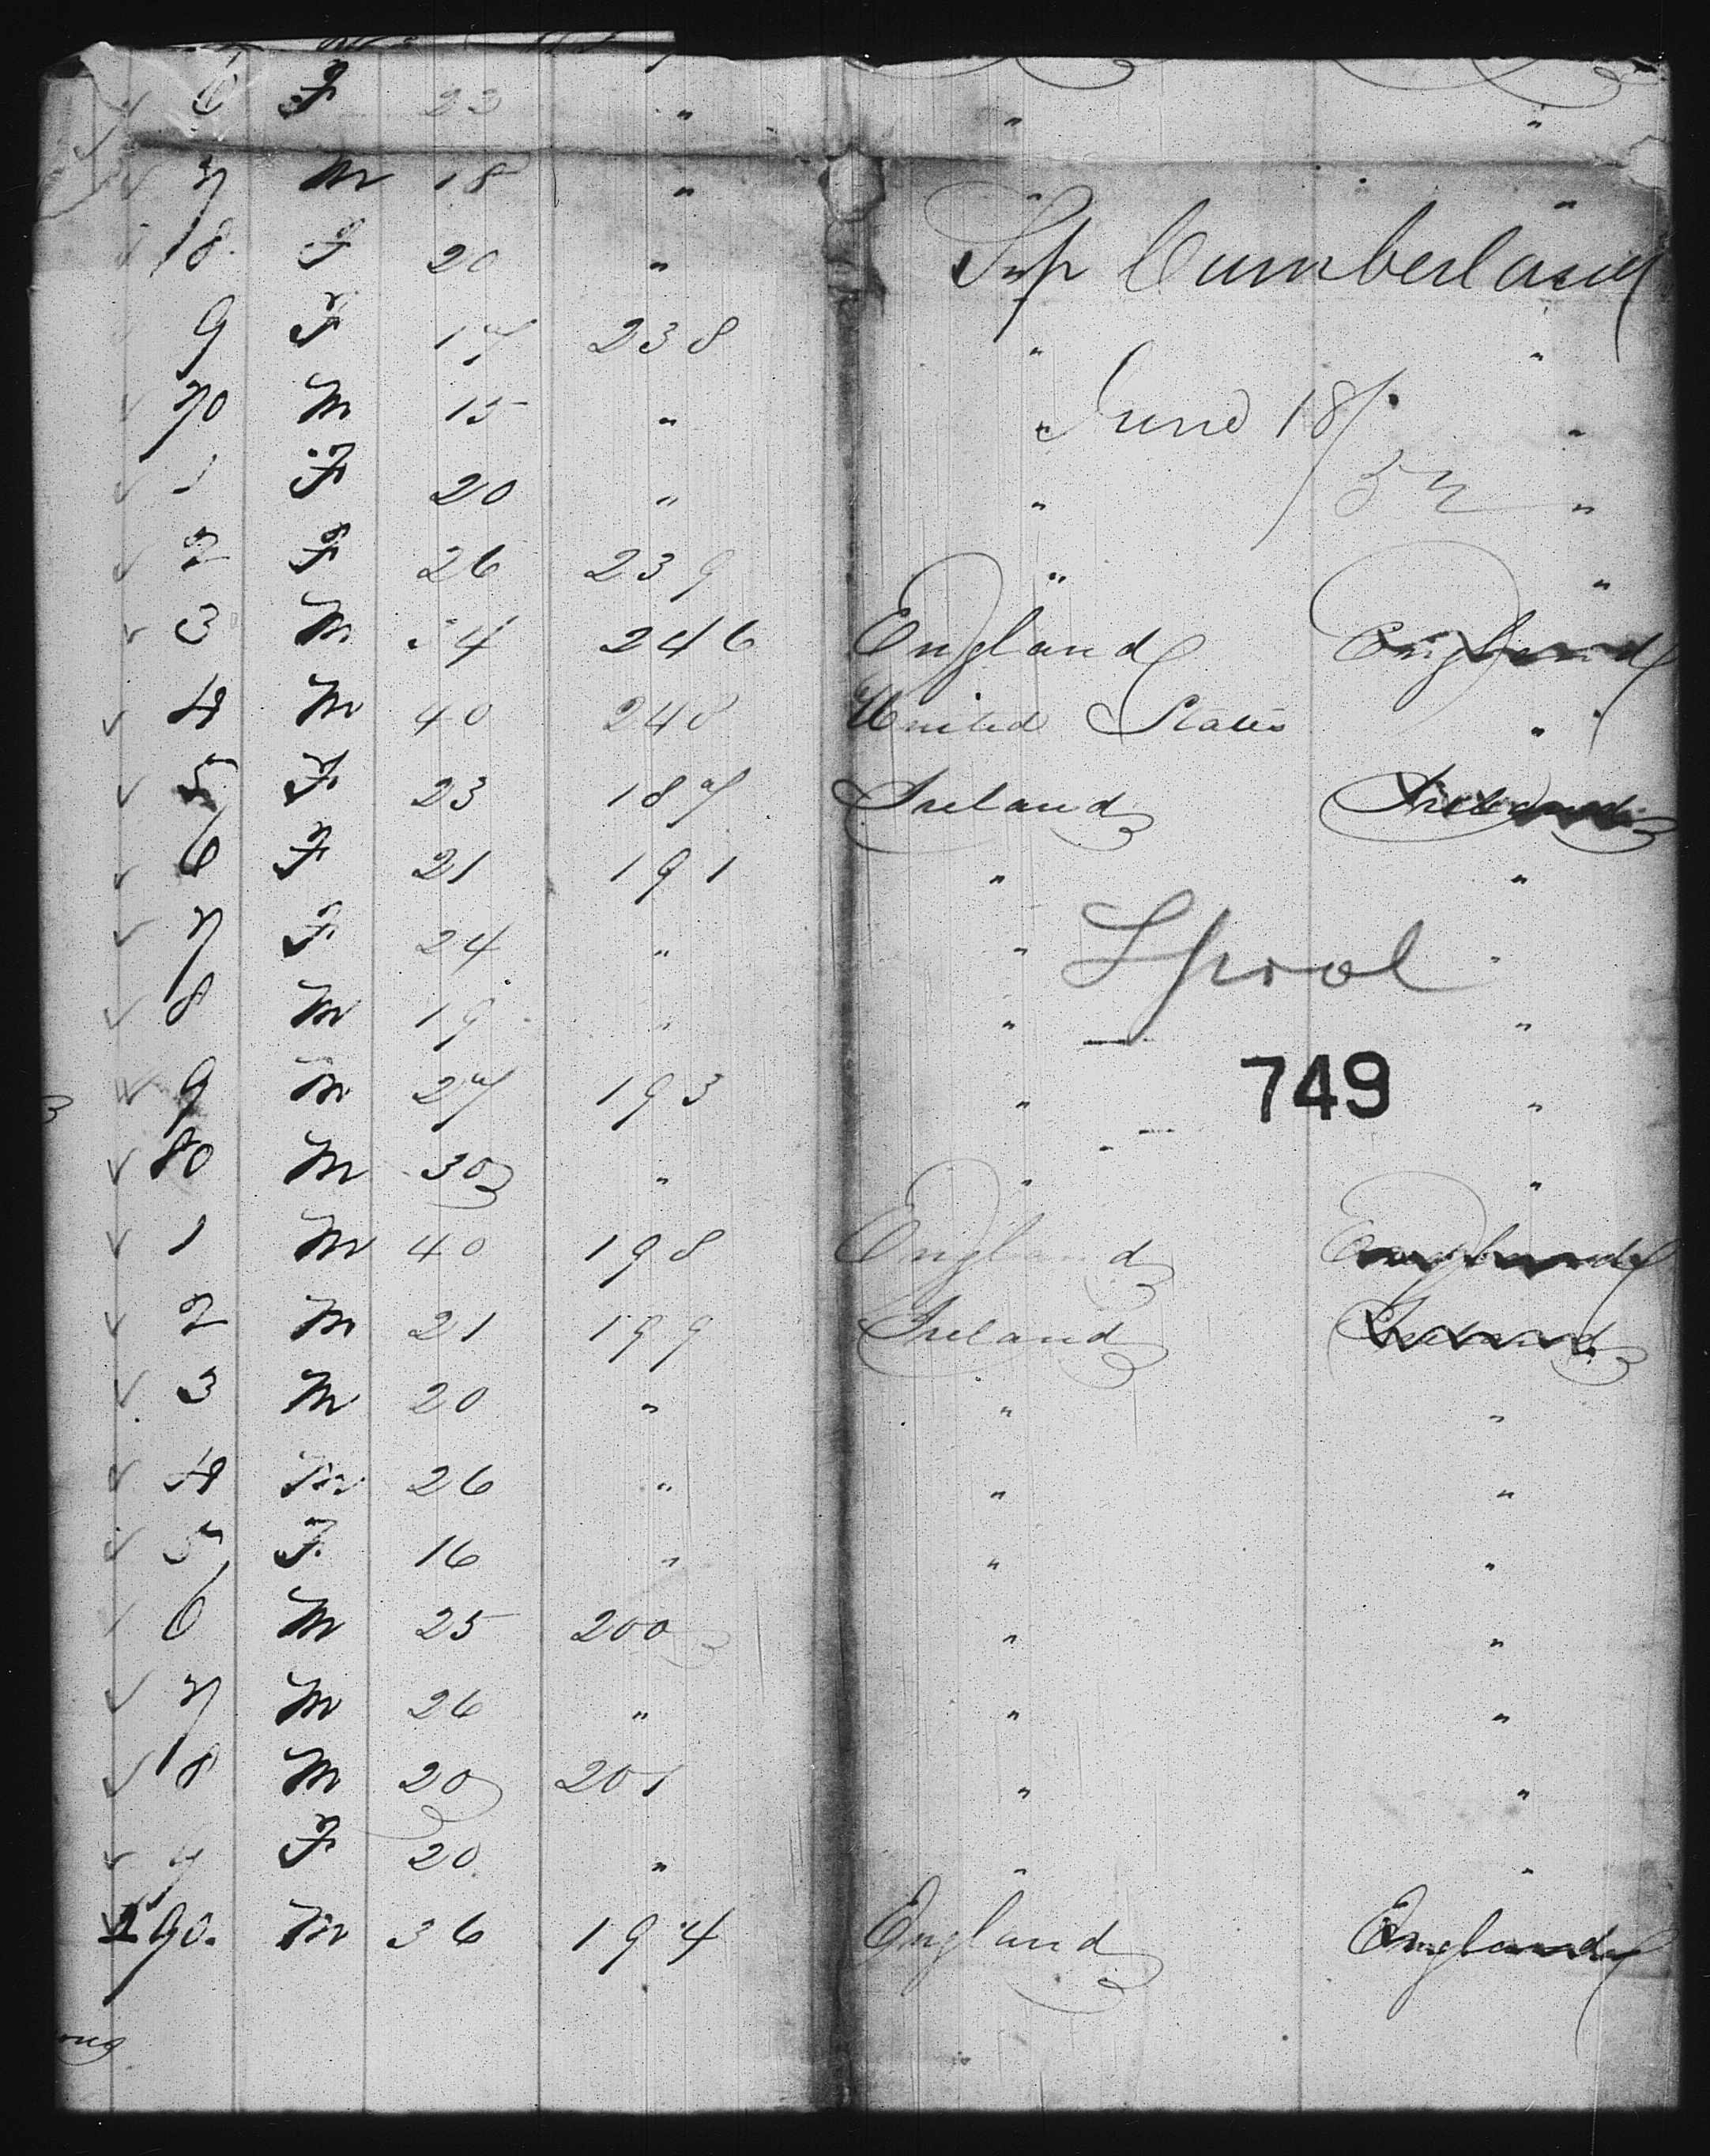 6 F 23 " " "
7 M 18 " " "
8 F 20 "
Shp Cumberland
9 F 17 238 " "
70 M 15 " " June 18/ "
1 F 20 " " 52 "
2 F 26 239 " "
3 M 34 246 England England
4 M 40 248 United States "
5 F 23 187 Ireland Ireland
6 F 21 191 " "
7 F 24 " " Lpool "
8 M 19 " " "
9 M 27 193 " 749 "
80 M 30 " " "
1 M 40 198 England England
2 M 21 199 Ireland Ireland
3 M 20 " " "
4 M 26 " " "
5 F 16 " " "
6 M 25 200 " "
7 M 26 " " "
8 M 20 201 " "
9 F 20 " " "
290. M 36 194 England England